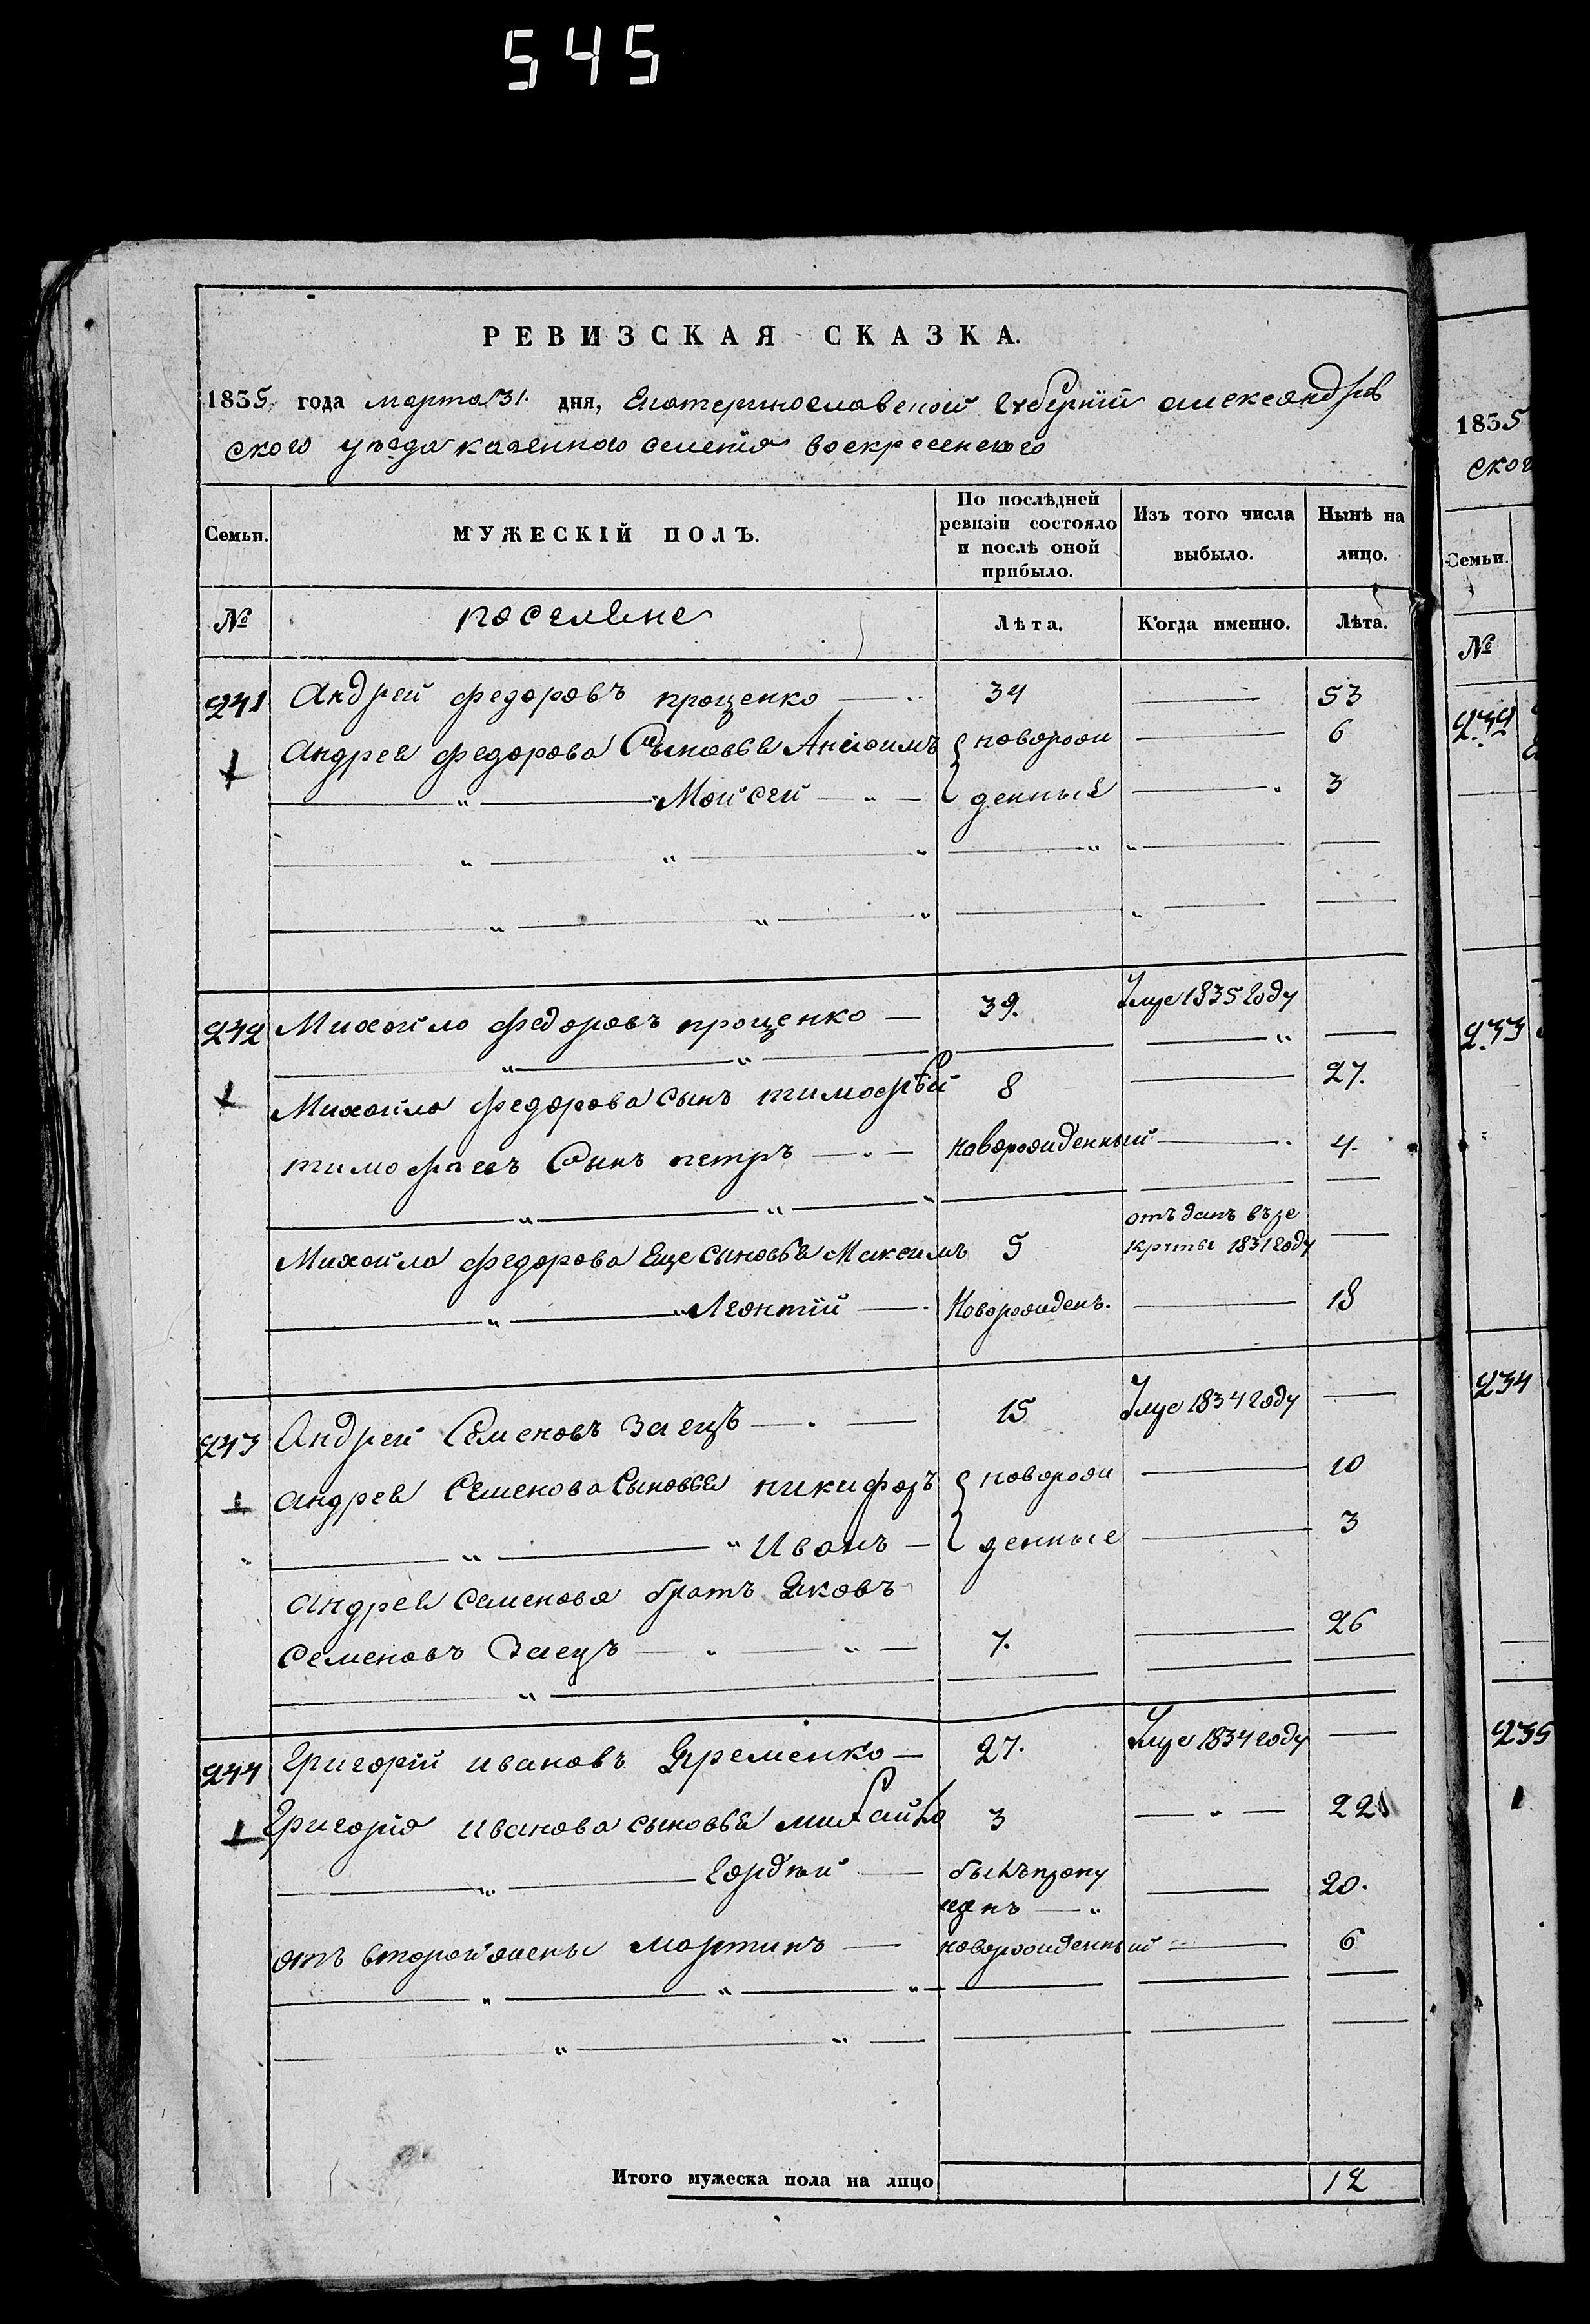 545
РЕВИЗСКАЯ СКАЗКА.
1835 года марта 31. дня, Екатеринославской губернїи александров
ского уезда казенного селенїя воскресенского
Семьи. МУЖЕСКІЙ ПОЛЪ. По послѣдней ревизіи состояло и послѣ оной прибыло. Изъ того числа выбыло. Нынѣ на лицо.
№ поселяне Лѣта. Когда именно. Лѣта.
241 Андрей федоровъ проценко 34 53
Андрея федорова Сыновья Анисимъ новорож 6
" Мойсей " денные 3
242 Михайло федоровъ проценко 39. Умре 1835 году
Михайла федорова сынъ тимофѣй 8 27.
тимофеевъ Сынъ петръ новорожденный 4.
отъданъ въ ре
Михайла федорова Еще сыновья Максимъ 5 круты 1831 году
" Леонтїй новорожденъ. 18
243 Андрей Семеновъ Заецъ 15 Умре 1834 году
андрея Семенова Сыновья никифоръ новорож 10
" " Иванъ денные 3
андрея семенова братъ Яковъ
семеновъ Заецъ 7. 26
244 Григорїй ивановъ Яременко 27. Умре 1834 году
Григорїя иванова сыновья михайло 3 22
" Гордѣй былъ пропу 20.
щенъ
отъ второй жены мартинъ новорожденный 6
Итого мужеска пола на лицо 12
1835
ског
Семьи.
№
232
233
234
235